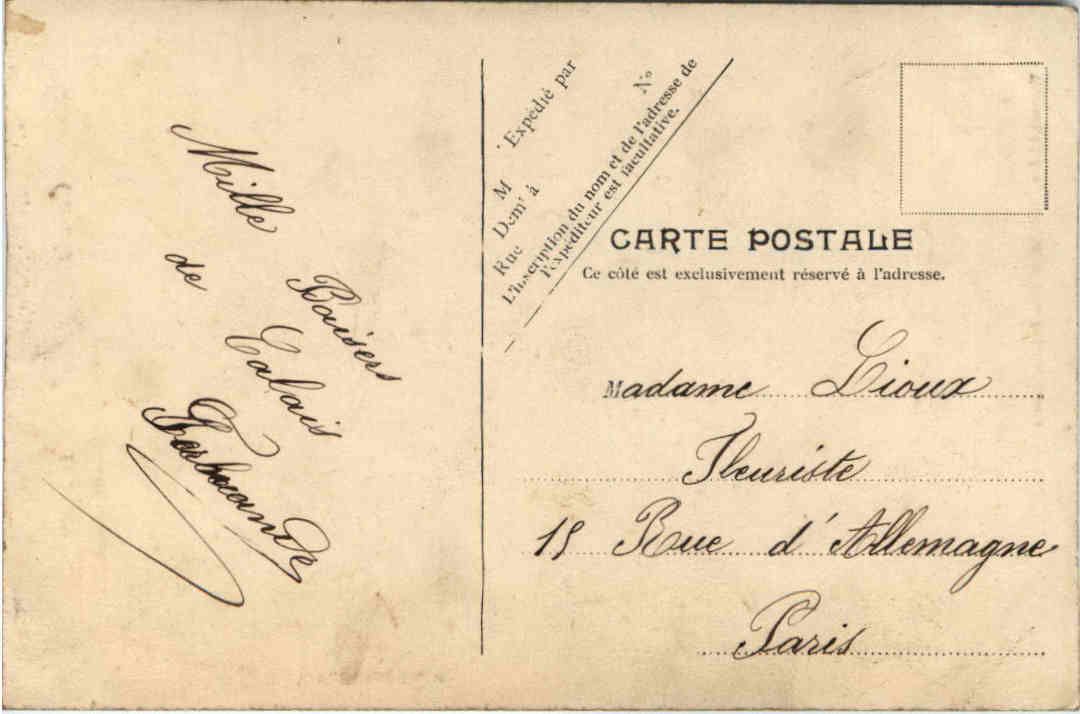 Mille Baisers
de Calais
Expédié par
M N°
Dem' à
Rue
L'Inscription du nom et de l'adresse de
l'expéditeur est facultative.
CARTE POSTALE
Ce côté est exclusivement réservé à l'adresse.
Madame Lioux
Fleuriste
15 Rue d'Allemagne
Paris